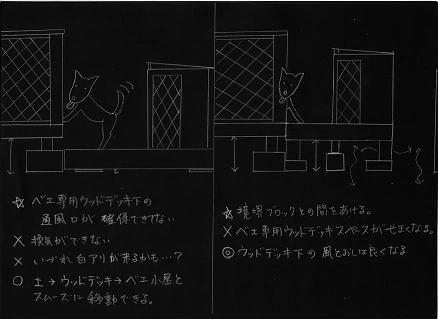 ☆ ベエ専用ウッドデッキ下の
通風口が確保できてない
× 換気ができない
× いづれ白アリが来るかも…?
○ 土→ウッドデッキ→ベエ小屋と
スムーズに移動できる。
☆ 境界ブロックとの間をあける。
× ベエ専用ウッドデッキスペースがせまくなる。
◎ ウッドデッキ下の風とおしは良くなる